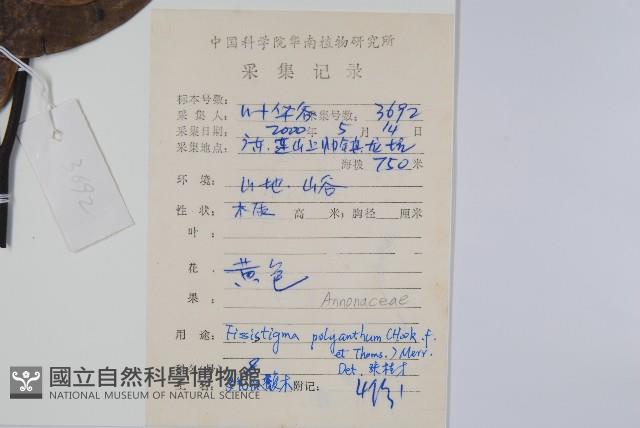 中国科学院华南植物研究所
采集记录
标本号数:
采集人: 采集号数: 3692
采集日期: 2020年 5月 14日
采集地点: 广东.连山上帅镇
海拨 750米
环境: 山地.山谷
性状: 高 米; 胸径 厘米
叶:
花: 黄色
果:
Annonaceae
用途: Fissistigma polyanthum (Hook.f.
et Thoms.) Merr.
Det. 张桂才
附记:
3692
國立自然科學博物館
NATIONAL MUSEUM OF NATURAL SCIENCE